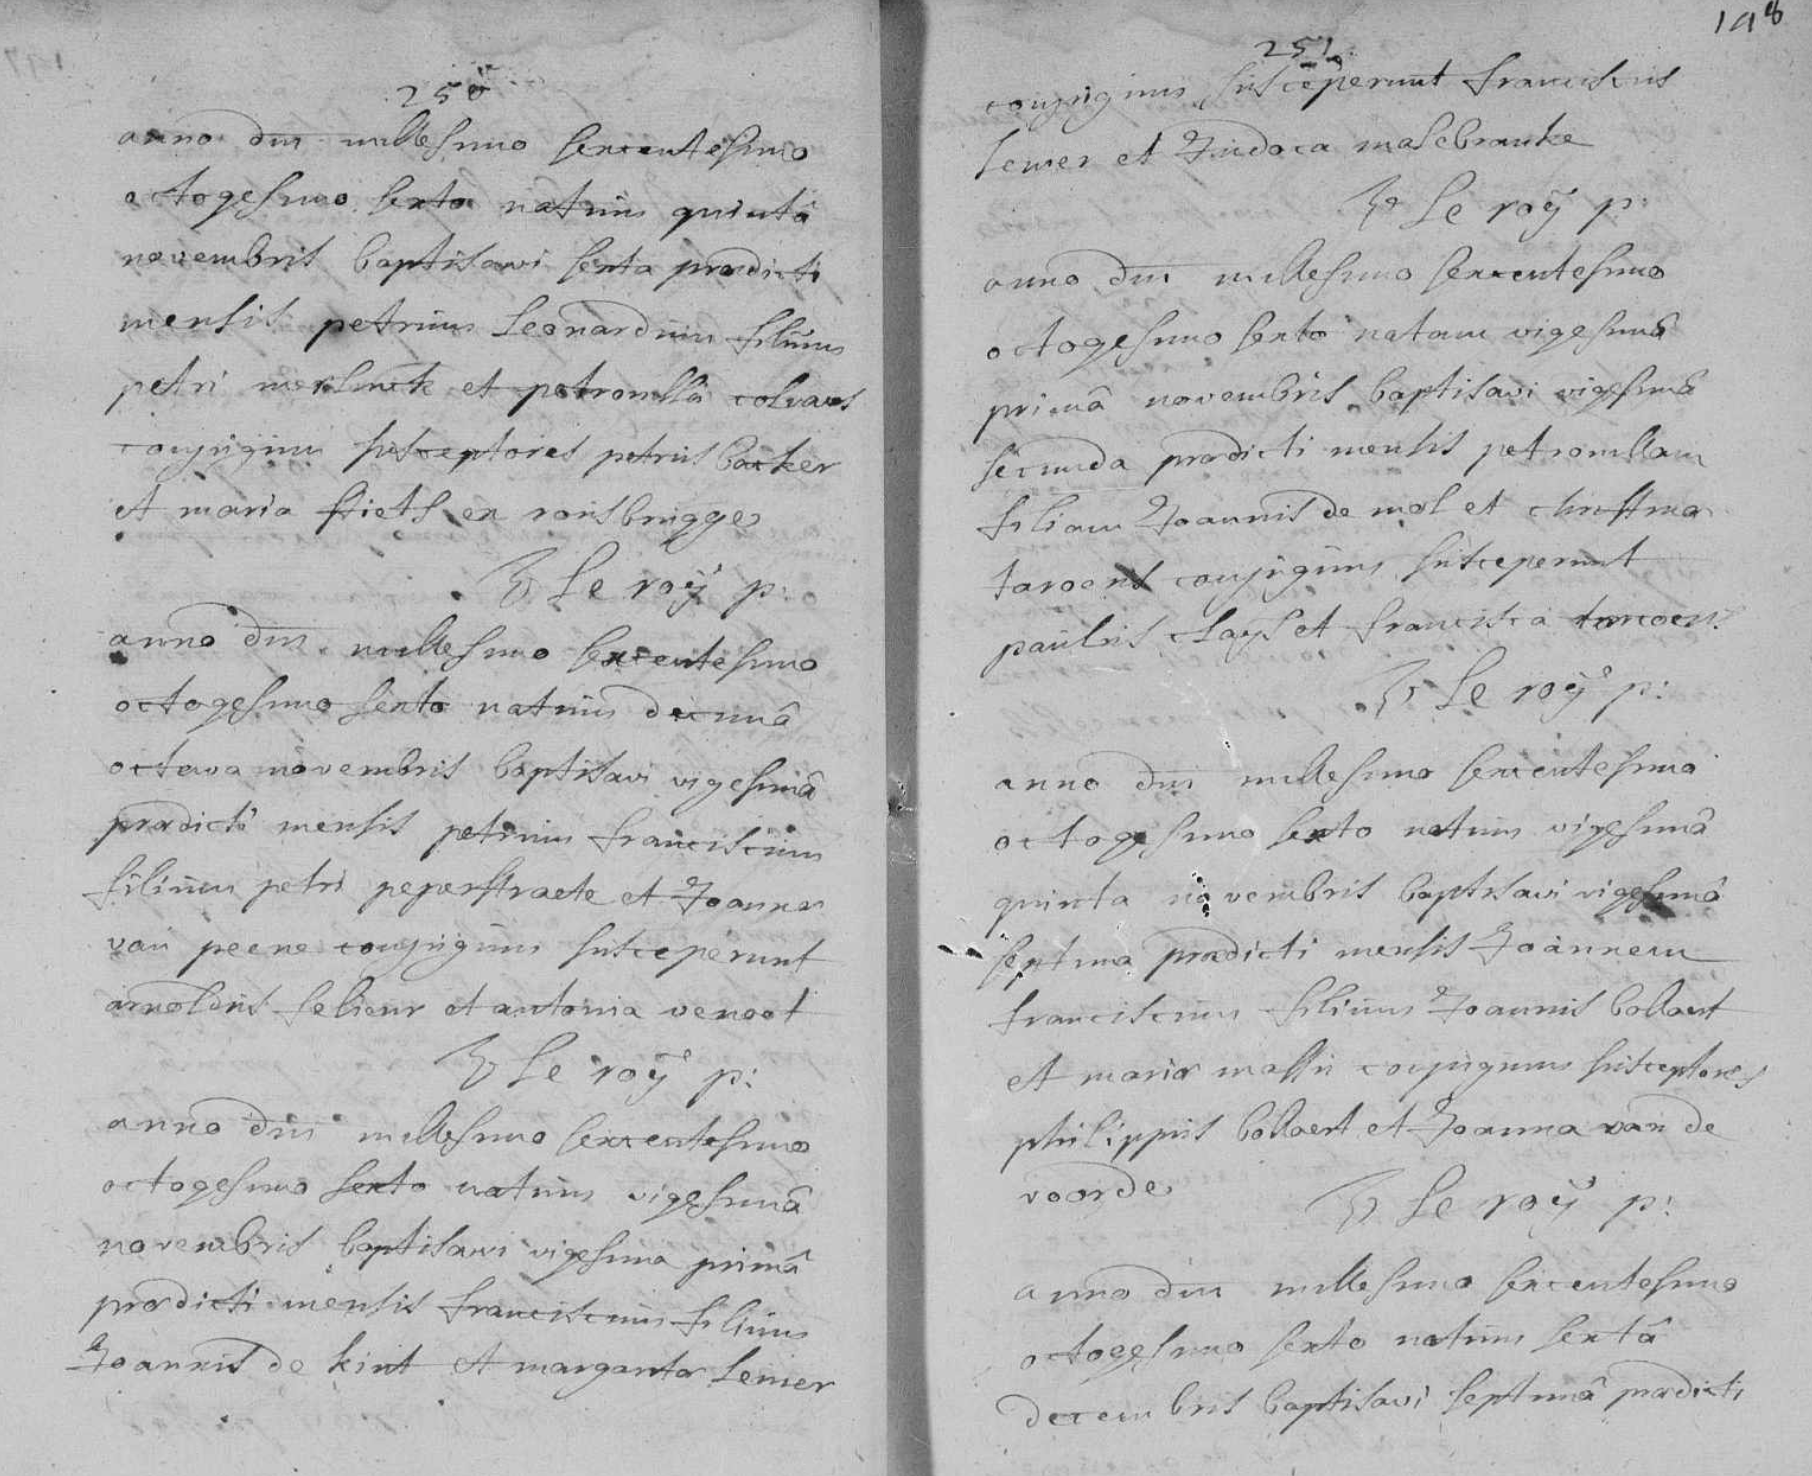 250
anno dni millesimo sexcentesimo
octogesimo sexto natum quintâ
novembris baptisavi sexta prædicti
mensis petrum Leonardum filium
petri merlinck et petronillæ colvaers
conjugum susceptores petrus backer
et maria stiets ex rousbrugge
Le roÿ p:
anno dni millesimo sexcentesimo
octogesimo sexto natum decimâ
octava novembris baptisavi vigesimâ
prædicti mensis petrum franciscum
filium petri peperstraete et Joannæ
van peene conjugum susceperunt
arnoldus felieur et antonia venoot
Le roÿ p:
anno dni millesimo sexcentesimo
octogesimo sexto natum vigesimâ
novembris baptisavi vigesima primâ
prædicti mensis franciscum filium
Joannis de kint et margaritæ Lemer
198
251
conjugum susceperunt franciscus
Lemer et Judoca malebranke
Le roÿ p:
anno dni millesimo sexcentesimo
octogesimo sexto natam vigesimâ
primâ novembris baptisavi vigesimâ
secunda prædicti mensis petronillam
filiam Joannis de mol et christinæ
taroens conjugum susceperunt
paulus clays et francisca taroens
Le roÿ p:
anno dni millesimo sexcentesimo
octogesimo sexto natum vigesimâ
quinta novembris baptisavi vigesimâ
septima prædicti mensis Joannem
franciscum filium Joannis bollaert
et mariæ massu conjugum susceptores
philippus bollaert et Joanna van de
voorde
Le roÿ p:
anno dni millesimo sexcentesimo
octogesimo sexto natum sextâ
decembris baptisavi septimâ prædicti